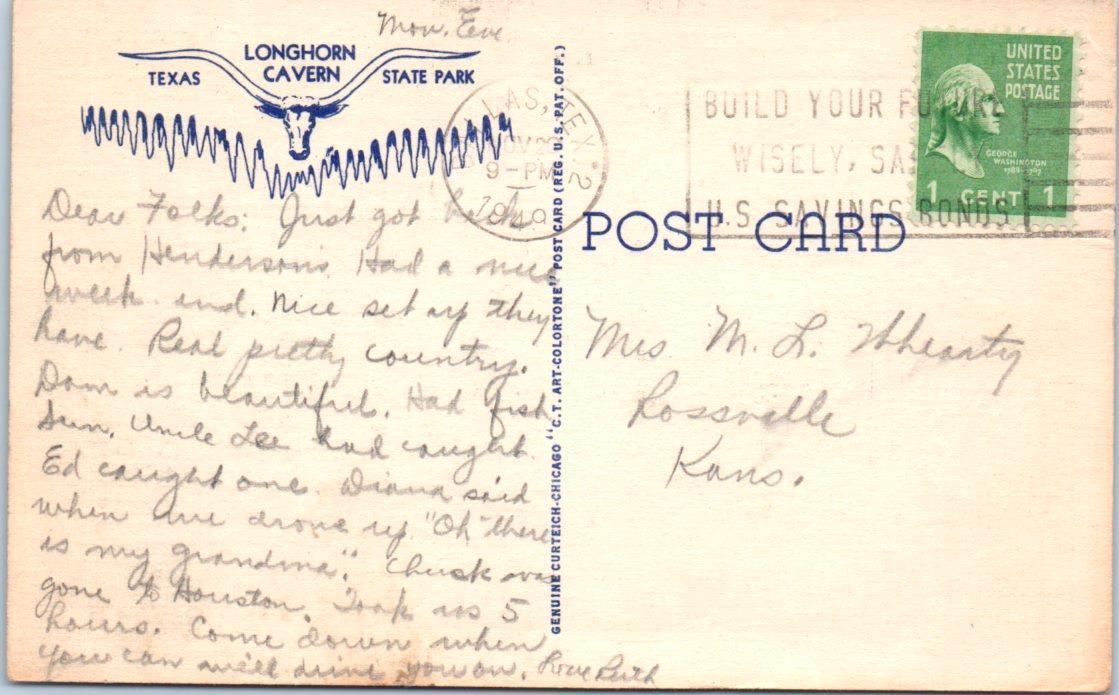 Mon. Eve.
LONGHORN
CAVERN
TEXAS STATE PARK
Dear Folks: Just got back
from Hendersons. Had a nice
week end. Nice set up they
have Real pretty country.
Dam is beautiful. Had fish
Sun. Uncle Lee had caught.
Ed caught one. Diana said
when we drove up "Oh there
is my grandma". Chuck was
gone to Houston. Took us 5
hours. Come down when
you can we'll drive you on. Love Ruth
GENUINE CURTEICH-CHICAGO "C.T. ART-COLORTONE" POST CARD (REG. U.S. PAT. OFF.)
LAS, TEX. 2
NOV 2
9-PM
1949
BUILD YOUR FUTURE
WISELY, SA
U.S. SAVINGS BONDS
UNITED
STATES
POSTAGE
GEORGE
WASHINGTON
1789-1797
1 CENT 1
POST CARD
Mrs M. L. Whearty
Rossville
Kans.